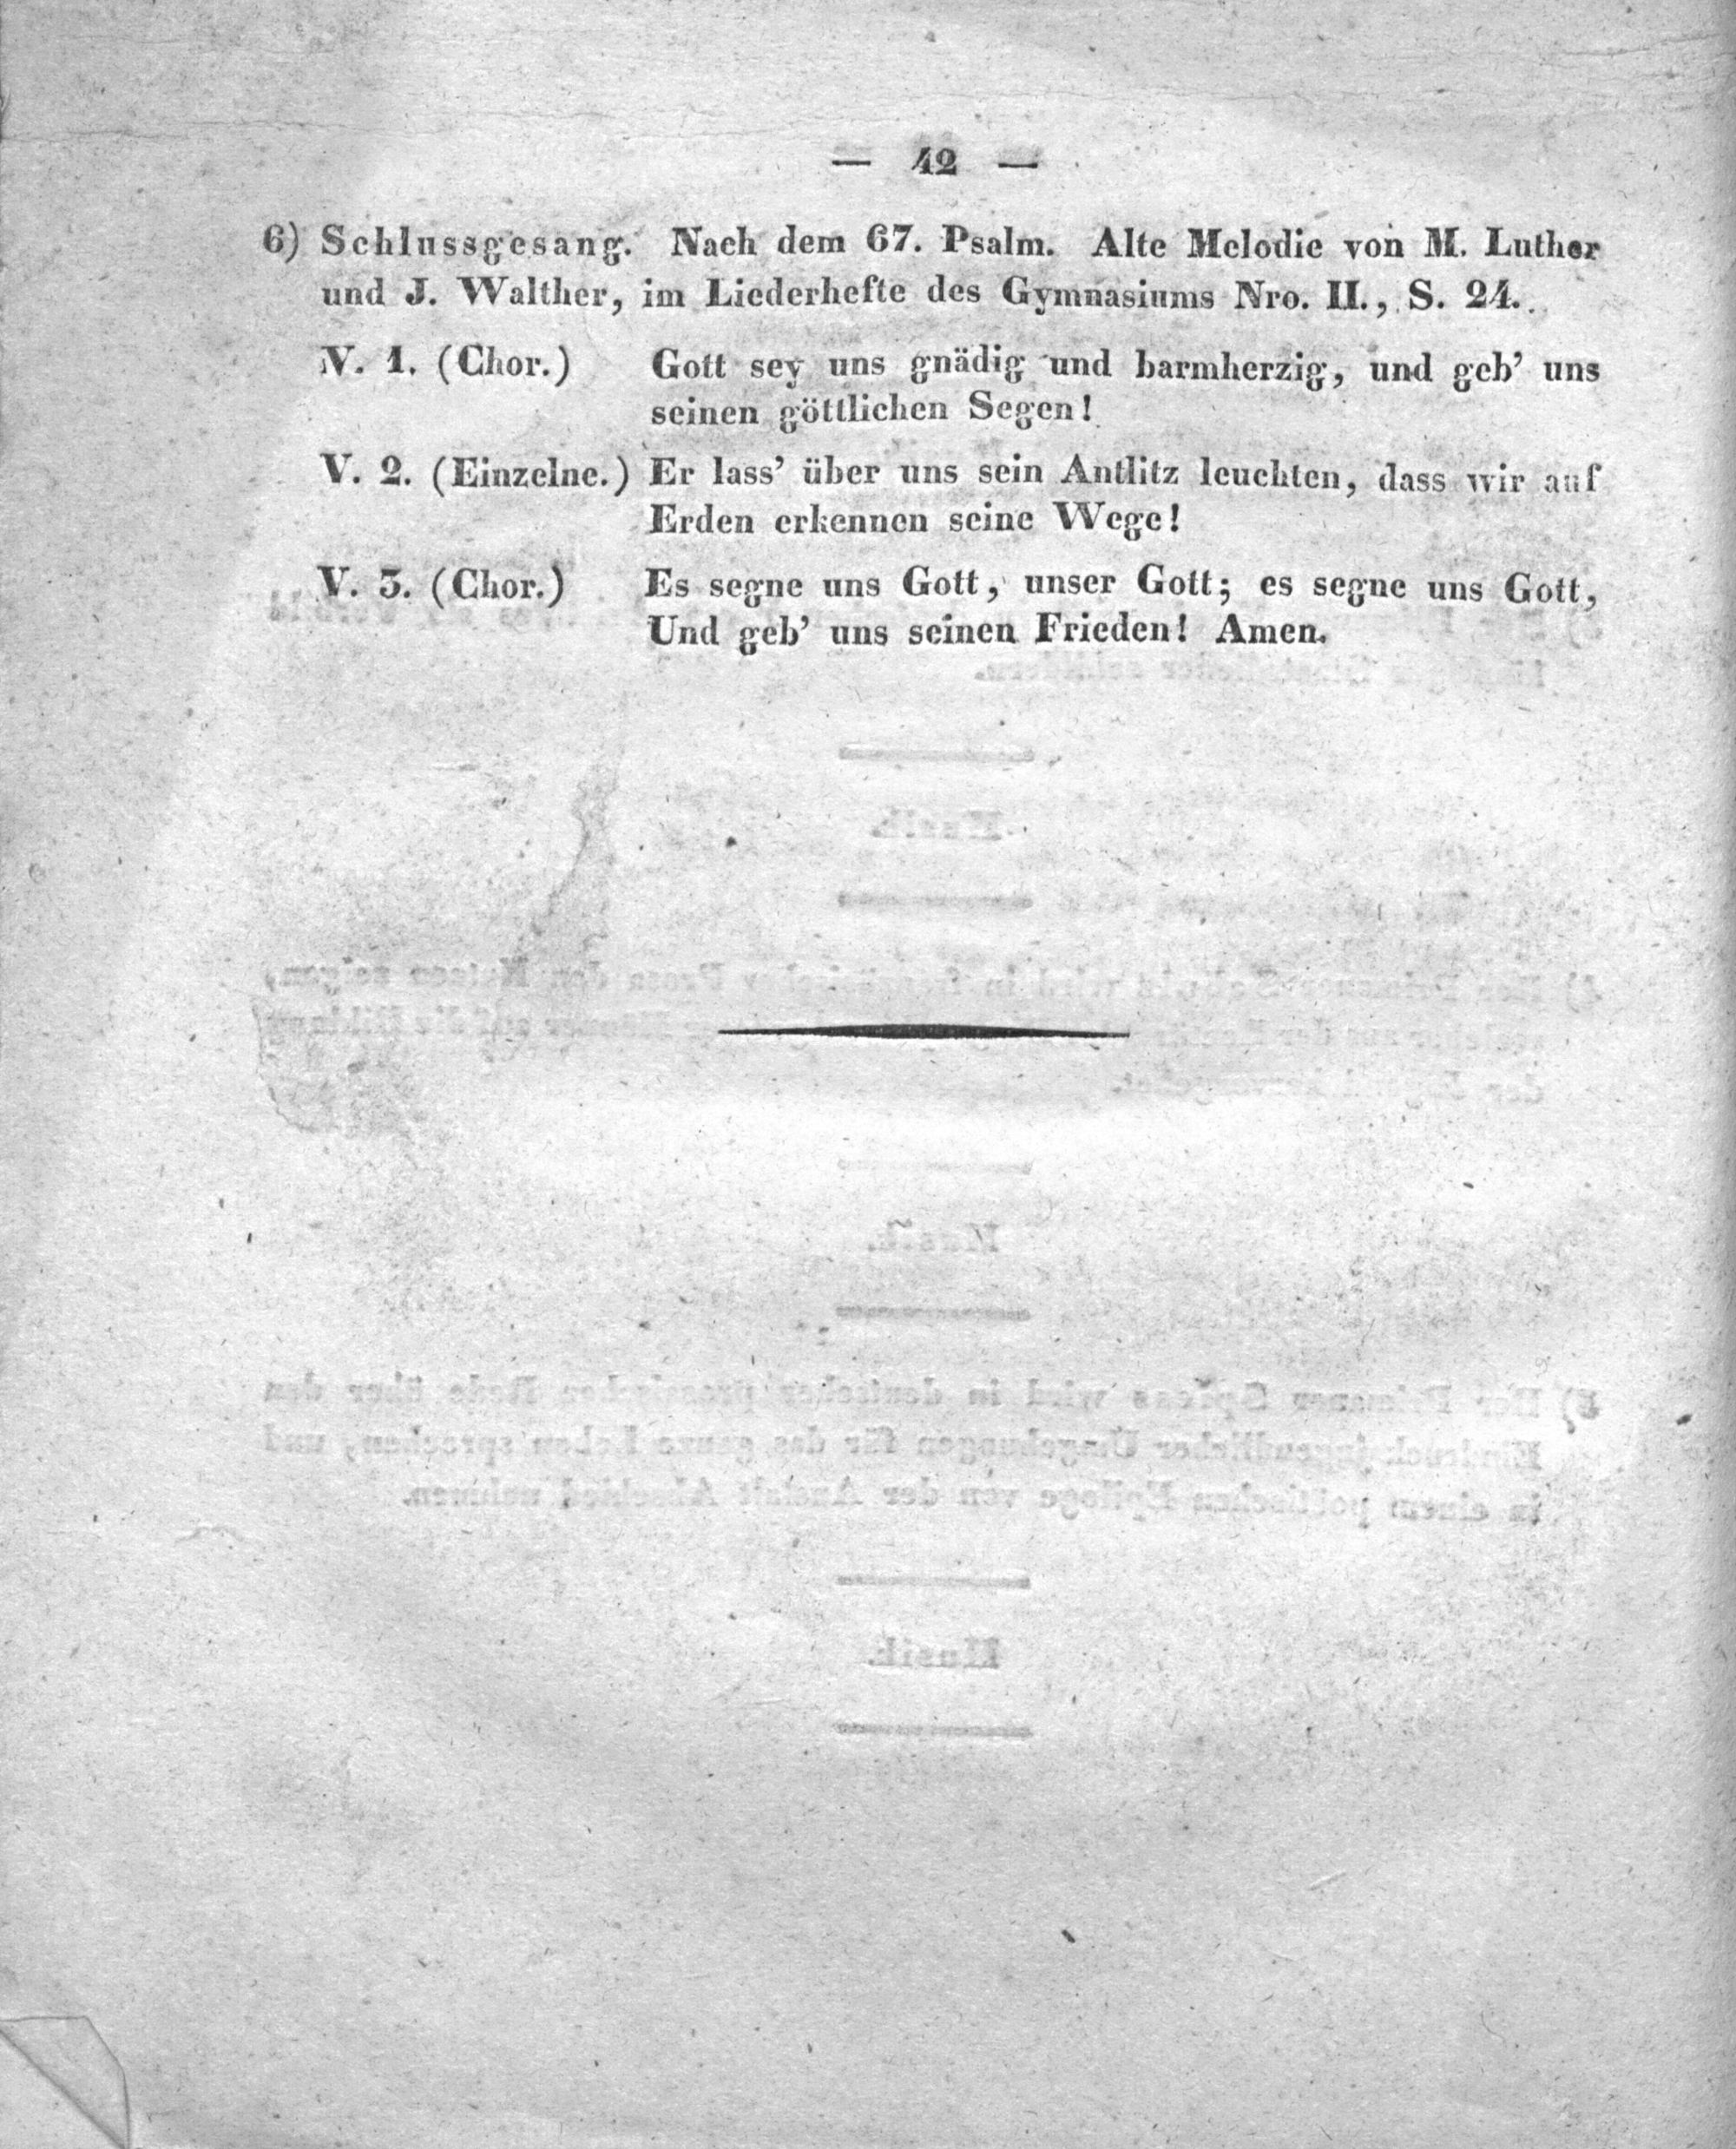 — 42 —
6) Schlussgesang. Nach dem 67. Psalm. Alte Melodie von M. Luther
und J. Walther, im Liederhefte des Gymnasiums Nro. II., S. 24.
V. 1. (Chor.) Gott sey uns gnädig und barmherzig, und geb’ uns
seinen göttlichen Segen!
V. 2. (Einzelne.) Er lass’ über uns sein Antlitz leuchten, dass wir auf
Erden erkennen seine Wege!
V. 3. (Chor.) Es segne uns Gott, unser Gott; es segne uns Gott,
Und geb’ uns seinen Frieden! Amen.